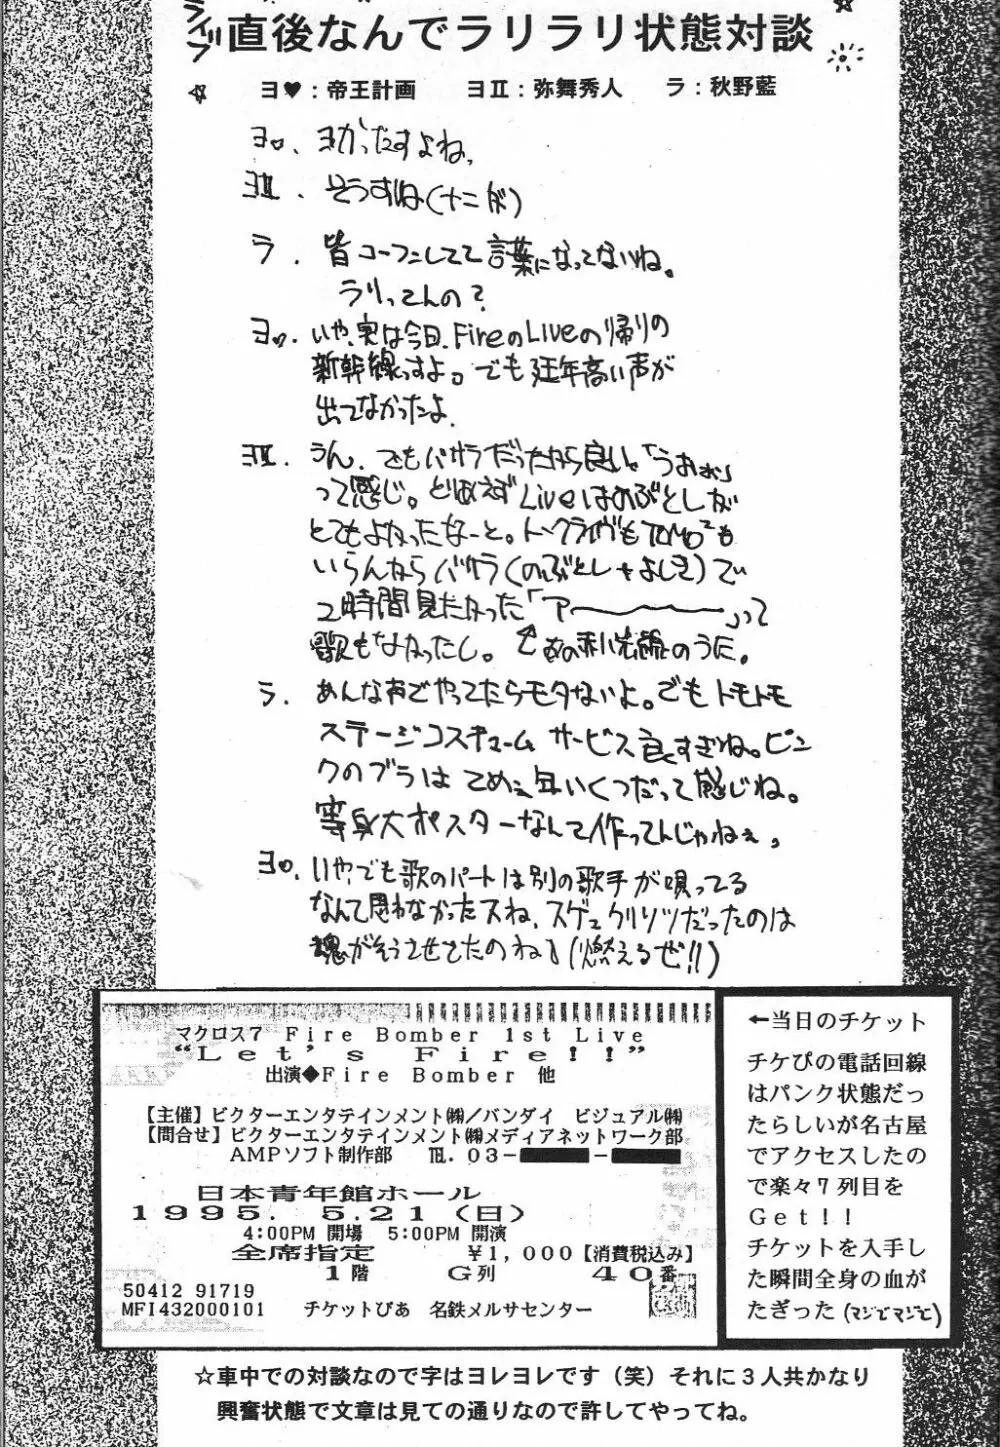 ライブ直後なんでラリラリ状態対談
ヨ♥：帝王計画　ヨⅡ：弥舞秀人　ラ：秋野藍
ヨ♥. ヨかったすよね。
ヨⅡ. そうすね(十二が)
ラ. 皆コーフンしてて言葉になってないね。
ラリってんの？
ヨ♥. いや、実は今日、FireのLiveの帰りの
新幹線っすよ。でも延年高い声が
出てなかったよ.
ヨⅡ. うん、でもバサラだったから良い。「うおぉ」
って感じ。とりあえずLiveはのぶとしが
とてもよかったなーと。トークライヴもTOMO²も
いらんからバサラ(のぶとし+よしき)で
2時間見たかった「アー〜〜〜」って
歌もなかったし。↑あの赤い光線のうた。
ラ. あんな声でやってたらモタないよ。でもトモトモ
ステージコスチューム サービス良すぎね。ピン
クのブラは てめェ年いくつだって感じね。
等身大ポスターなんて作ってんじゃねぇ。
ヨ♥. いや、でも歌のパートは別の歌手が唄ってる
なんて思わなかったスね、スゲェクリソツだったのは
魂がそうさせてたのね♪(燃えるぜ!!)
マクロス7 Fire Bomber 1st Live
“Let's Fire!!”
出演◆Fire Bomber 他
【主催】ビクターエンタテインメント㈱／バンダイ ビジュアル㈱
【問合せ】ビクターエンタテインメント㈱メディアネットワーク部
AMPソフト制作部 ℡. 03-
日本青年館ホール
1995. 5.21（日）
4:00PM 開場 5:00PM 開演
全席指定 ￥1,000【消費税込み】
1階 G列 40番
50412 91719
MFI432000101 チケットぴあ 名鉄メルサセンター
←当日のチケット
チケぴの電話回線
はパンク状態だっ
たらしいが名古屋
でアクセスしたの
で楽々7列目を
Get！！
チケットを入手し
た瞬間全身の血が
たぎった(マジでマジで)
☆車中での対談なので字はヨレヨレです（笑）それに3人共かなり
興奮状態で文章は見ての通りなので許してやってね。